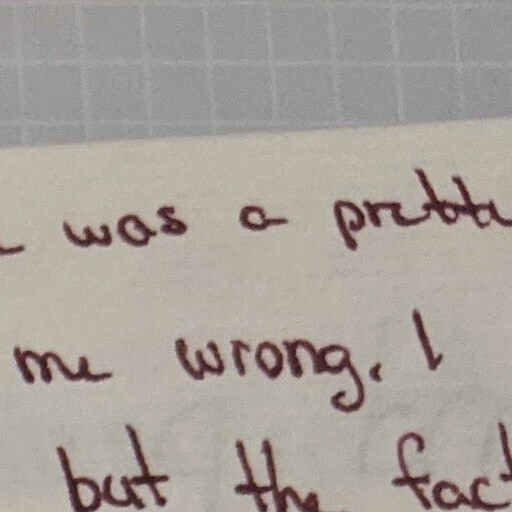 was a prett
me wrong. I
but the fact